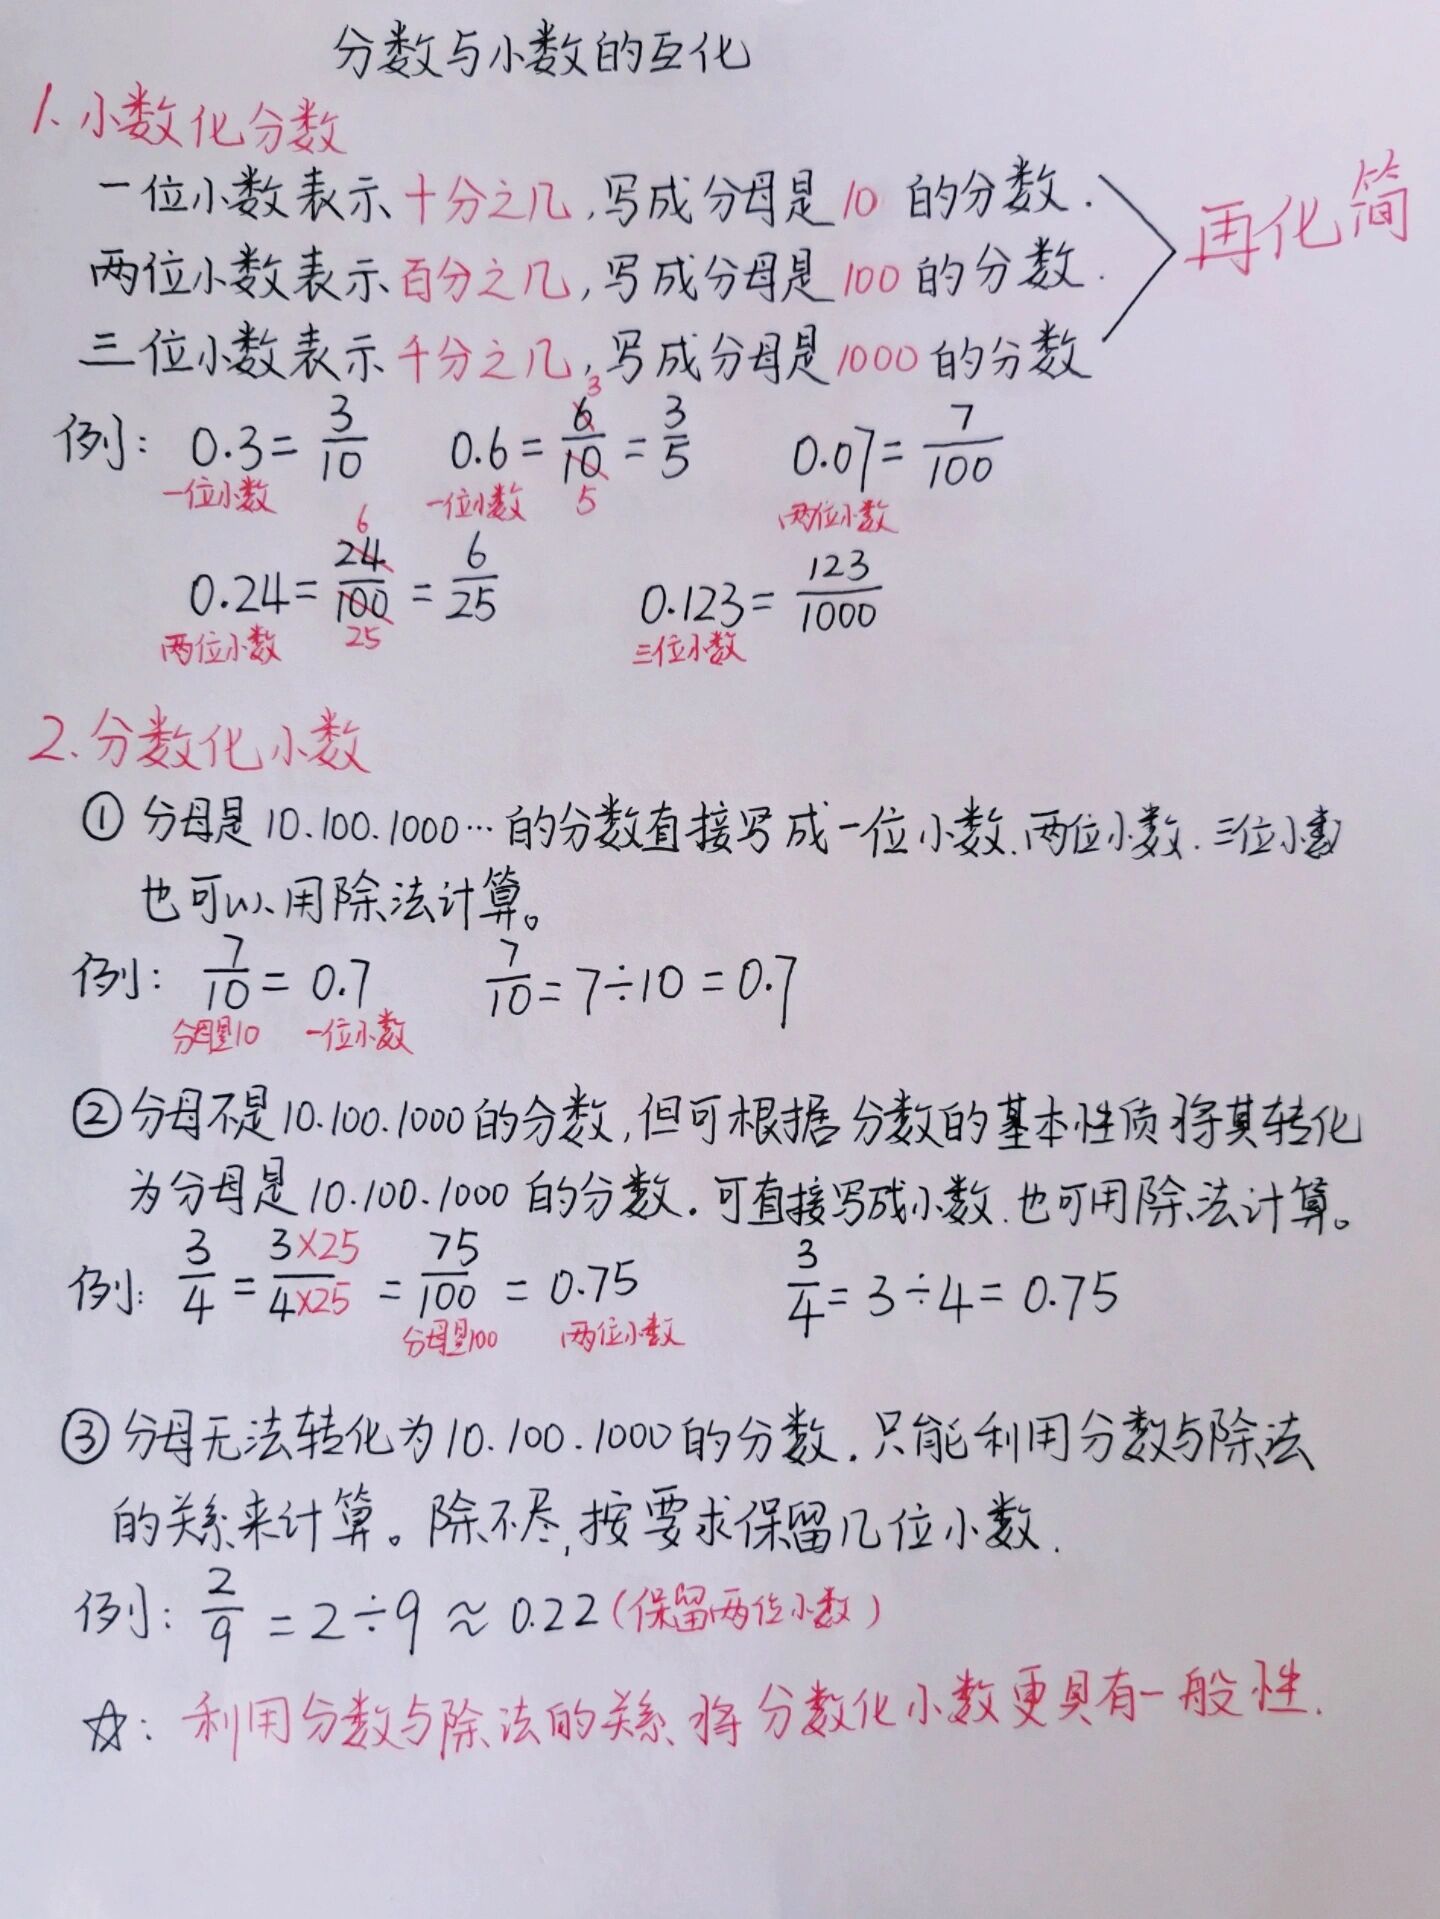 分数与小数的互化
1. 小数化分数
一位小数表示十分之几,写成分母是10的分数.
两位小数表示百分之几,写成分母是100的分数.
三位小数表示千分之几,写成分母是1000的分数
再化简
例: 0.3=3/10 0.6=6/10=3/5 0.07=7/100
3
5
一位小数 一位小数 两位小数
0.24=24/100=6/25 0.123=123/1000
6
25
两位小数 三位小数
2.分数化小数
① 分母是10.100.1000…的分数直接写成一位小数.两位小数.三位小数
也可以用除法计算。
例: 7/10=0.7 7/10=7÷10=0.7
分母是10 一位小数
②分母不是10.100.1000的分数,但可根据分数的基本性质将其转化
为分母是10.100.1000的分数.可直接写成小数.也可用除法计算。
例: 3/4=3×25/4×25=75/100=0.75 3/4=3÷4=0.75
分母是100 两位小数
③分母无法转化为10.100.1000的分数.只能利用分数与除法
的关系来计算。除不尽,按要求保留几位小数.
例: 2/9=2÷9≈0.22(保留两位小数)
☆: 利用分数与除法的关系将分数化小数更具有一般性.